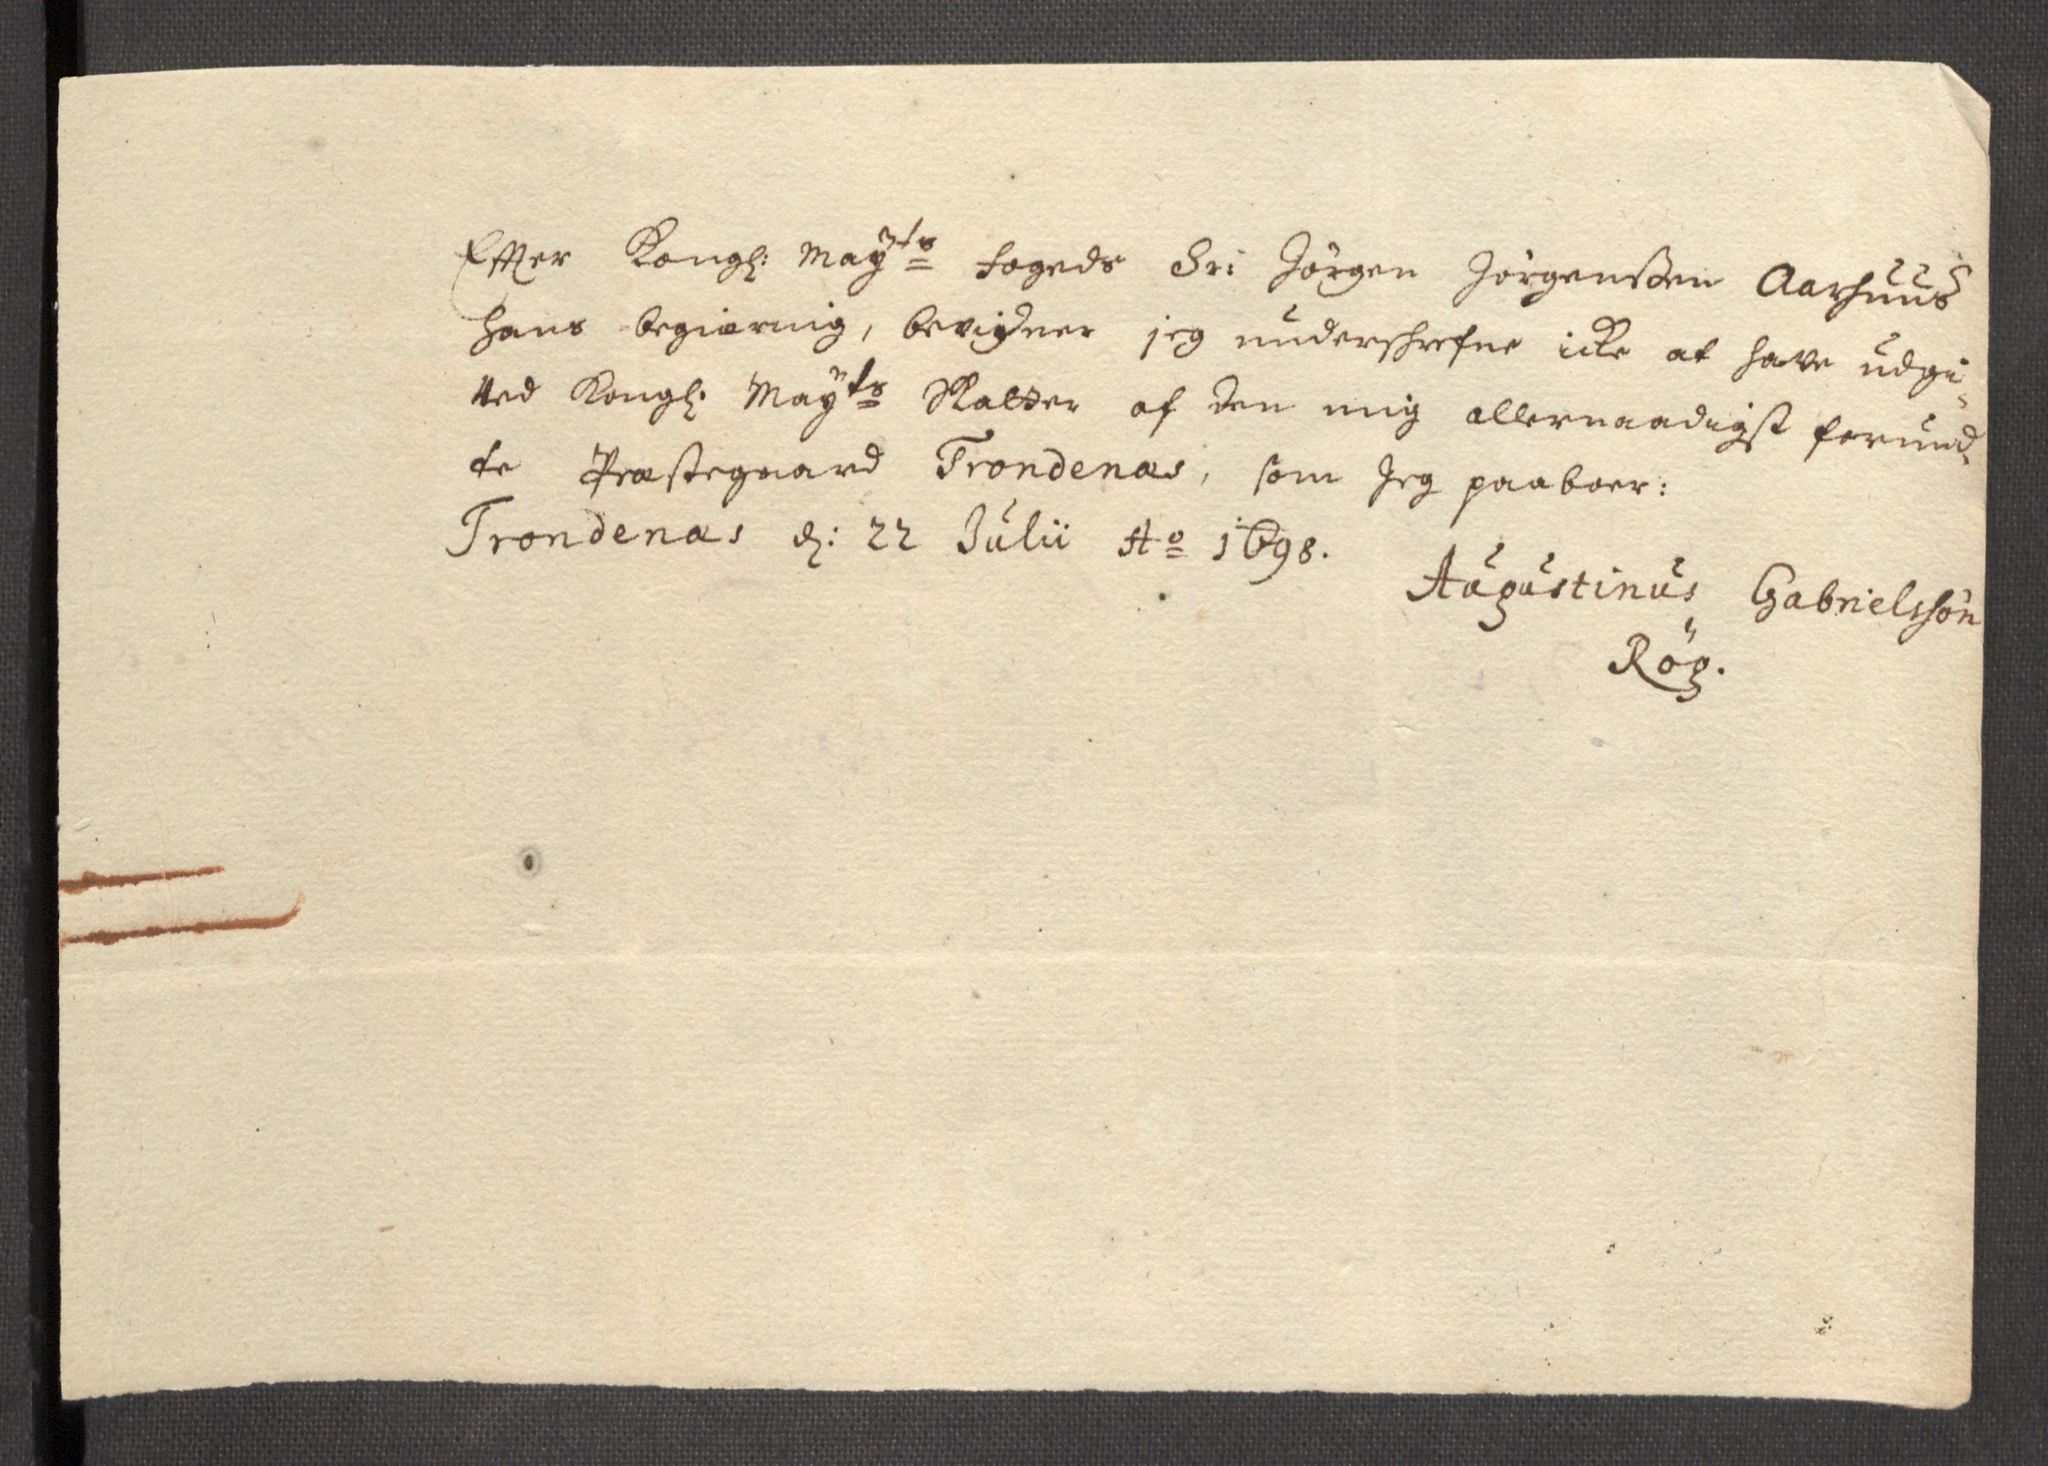 Effter Kongl: Mayts fogeds Sr: Jörgen Jörgenßen Aarhuus
hans begiæring, bevidner jeg underschrefne icke at have udgi-
vted Kongl: Mayts Skatter af den mig allernaadigst forund-
te Præstegaard Trondenæs, som Jeg paaboer:
Trondenæs d: 22 Julii Ao 1698.
Augustinus Gabrielssön
Rög.